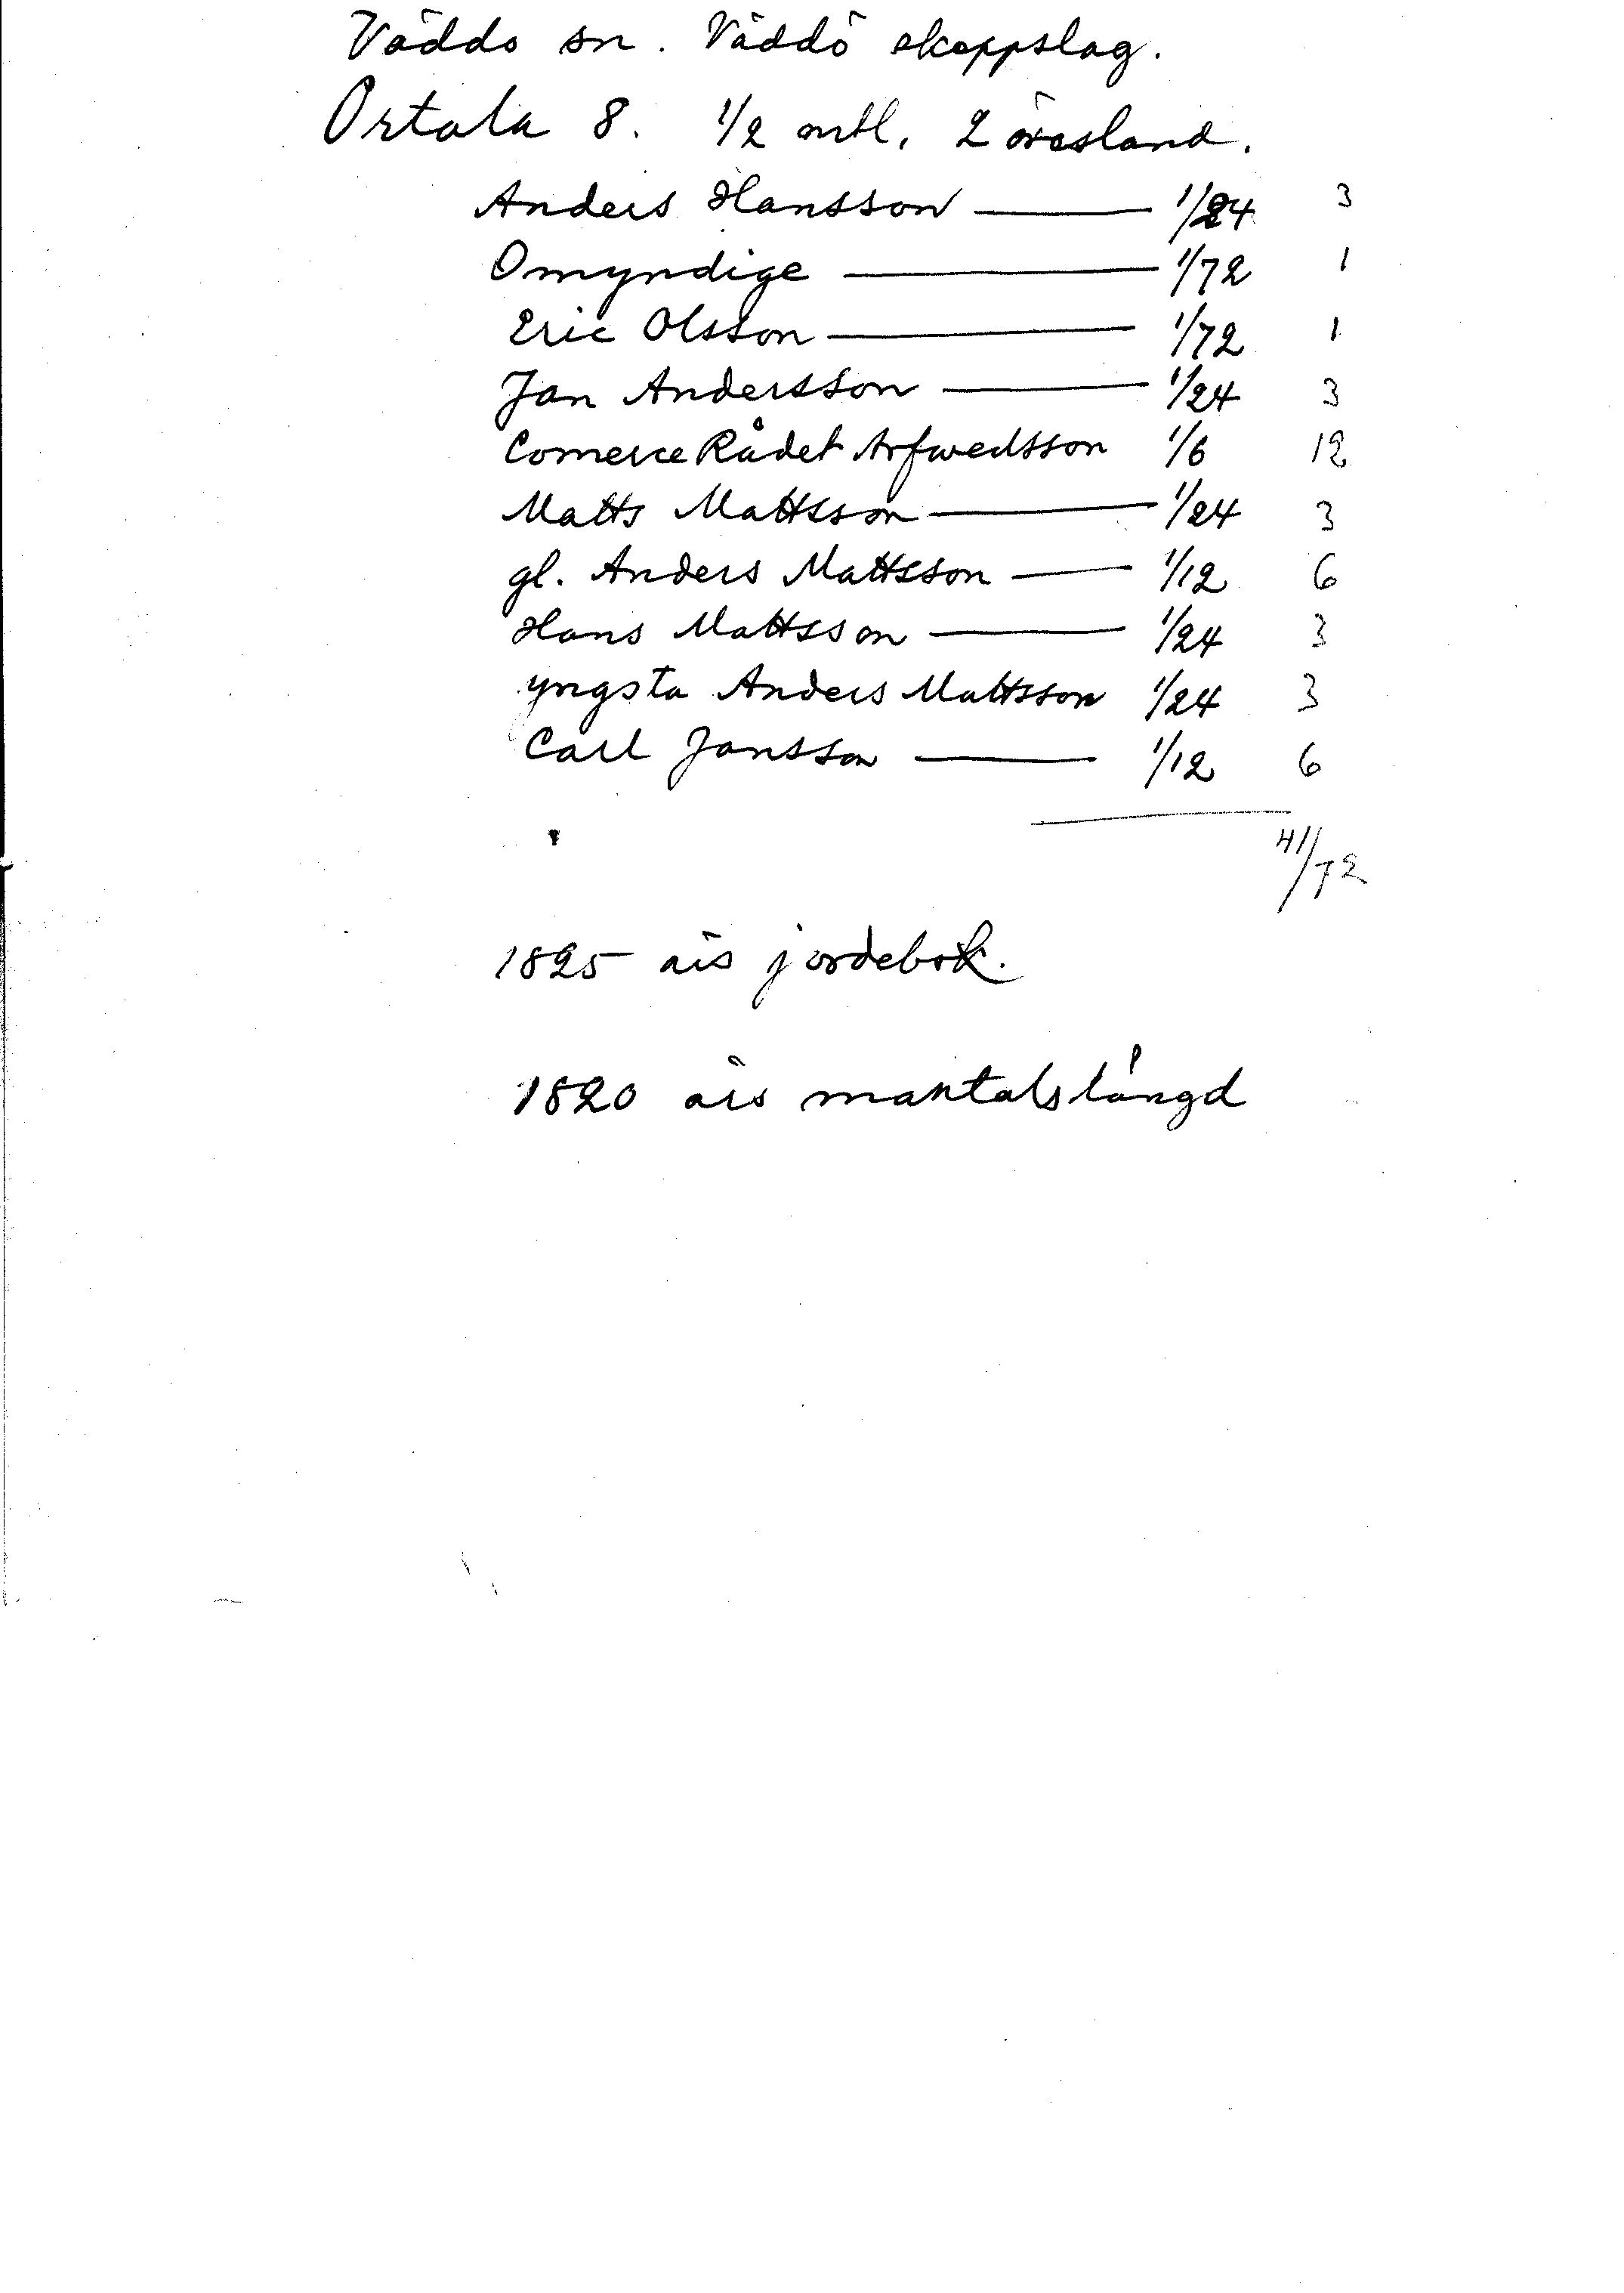 Väddö sn. Väddö skeppslag.
Ortala 8. 1/2 mtl. 2 öresland.
Anders Hansson — 1/24 3
Omyndige — 1/72 1
Eric Olsson — 1/72 1
Jan Andersson — 1/24 3
Comerce Rådet Arfwedsson 1/6 12
Matts Mattsson — 1/24 3
gl. Anders Mattsson — 1/12 6
Hans Mattsson — 1/24 3
yngsta Anders Mattsson 1/24 3
Carl Jansson — 1/12 6
41/72
1825 års jordebok.
1820 års mantalslängd